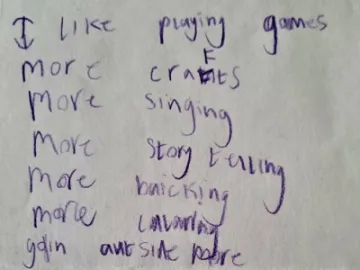 I like playing games
more crafts
more singing
more story telling
more
more
goin outside more